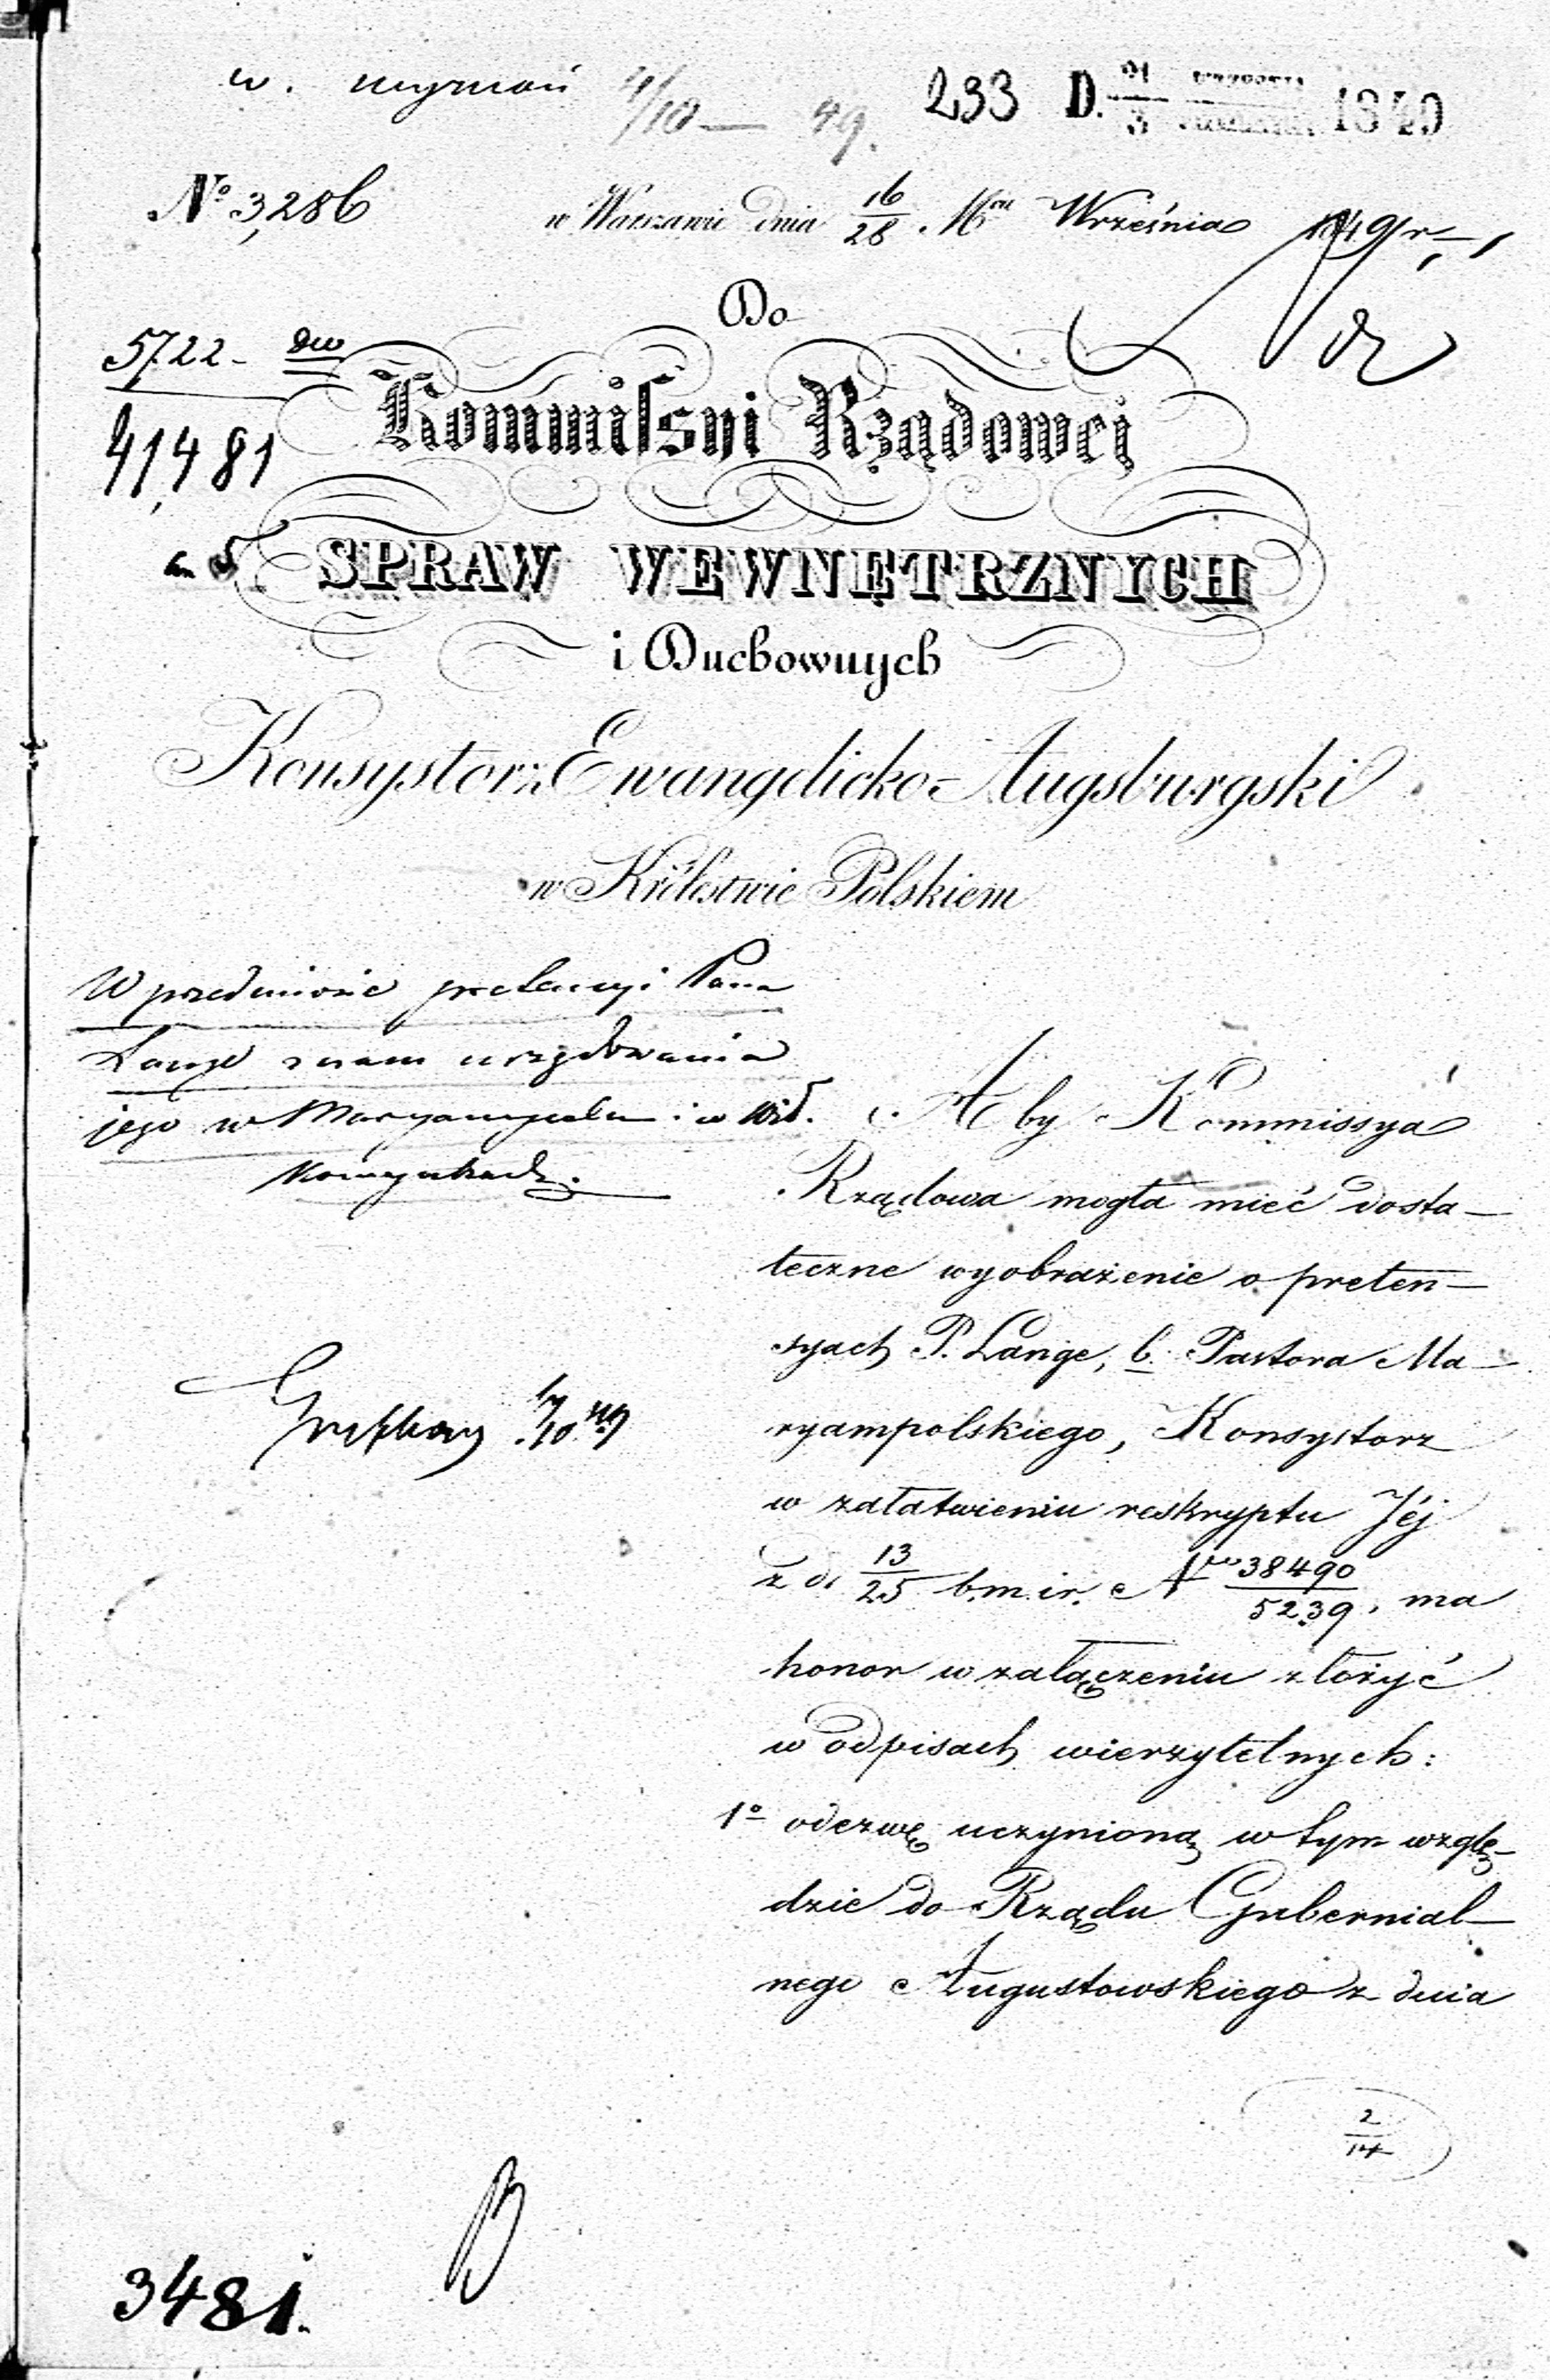 233 D. 21/3 1849
4/10 — 49.
№ 3,286
w Warszawie dnia 16/28 Mca Września 1849 r.
Do
5722 - dw
Kommissyi Rządowej
41,481
SPRAW WEWNĘTRZNYCH
i Duchownych
Konsystorz Ewangelicko-Augsburgski
w Królestwie Polskiem
W przedmiocie pretensyi Pana
Lange z czasu urzędowania
jego w Maryampolu i w Wił.
Aby Kommissya
Rządowa mogła mieć dosta-
teczne wyobrażenie o preten-
syach P. Lange, b. Pastora Ma-
ryampolskiego, Konsystorz
w załatwieniu reskryptu Jéj
z d. 13/25 b.m. i r. Nro 38490/5239, ma
honor w załączeniu złożyć
w odpisach wierzytelnych:
1o odezwę uczynioną w tym wzglę-
dzie do Rządu Gubernial-
nego Augustowskiego z dnia
2/14
3481.